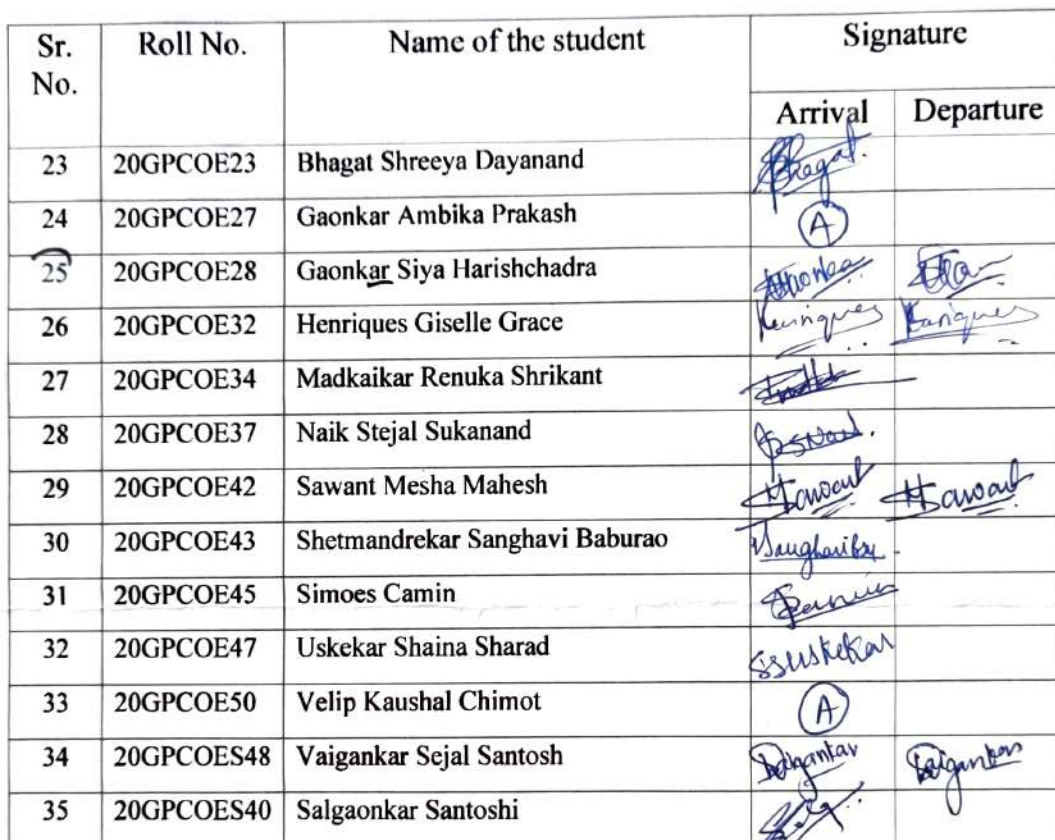 Sr. No. Roll No. Name of the student Signature
Arrival Departure
23 20GPCOE23 Bhagat Shreeya Dayanand Bhagat.
24 20GPCOE27 Gaonkar Ambika Prakash A
25 20GPCOE28 Gaonkar Siya Harishchadra
26 20GPCOE32 Henriques Giselle Grace Henriques Henriques
27 20GPCOE34 Madkaikar Renuka Shrikant
28 20GPCOE37 Naik Stejal Sukanand
29 20GPCOE42 Sawant Mesha Mahesh Sawant Sawant
30 20GPCOE43 Shetmandrekar Sanghavi Baburao
31 20GPCOE45 Simoes Camin
32 20GPCOE47 Uskekar Shaina Sharad SSUskekar
33 20GPCOE50 Velip Kaushal Chimot A
34 20GPCOES48 Vaigankar Sejal Santosh
35 20GPCOES40 Salgaonkar Santoshi